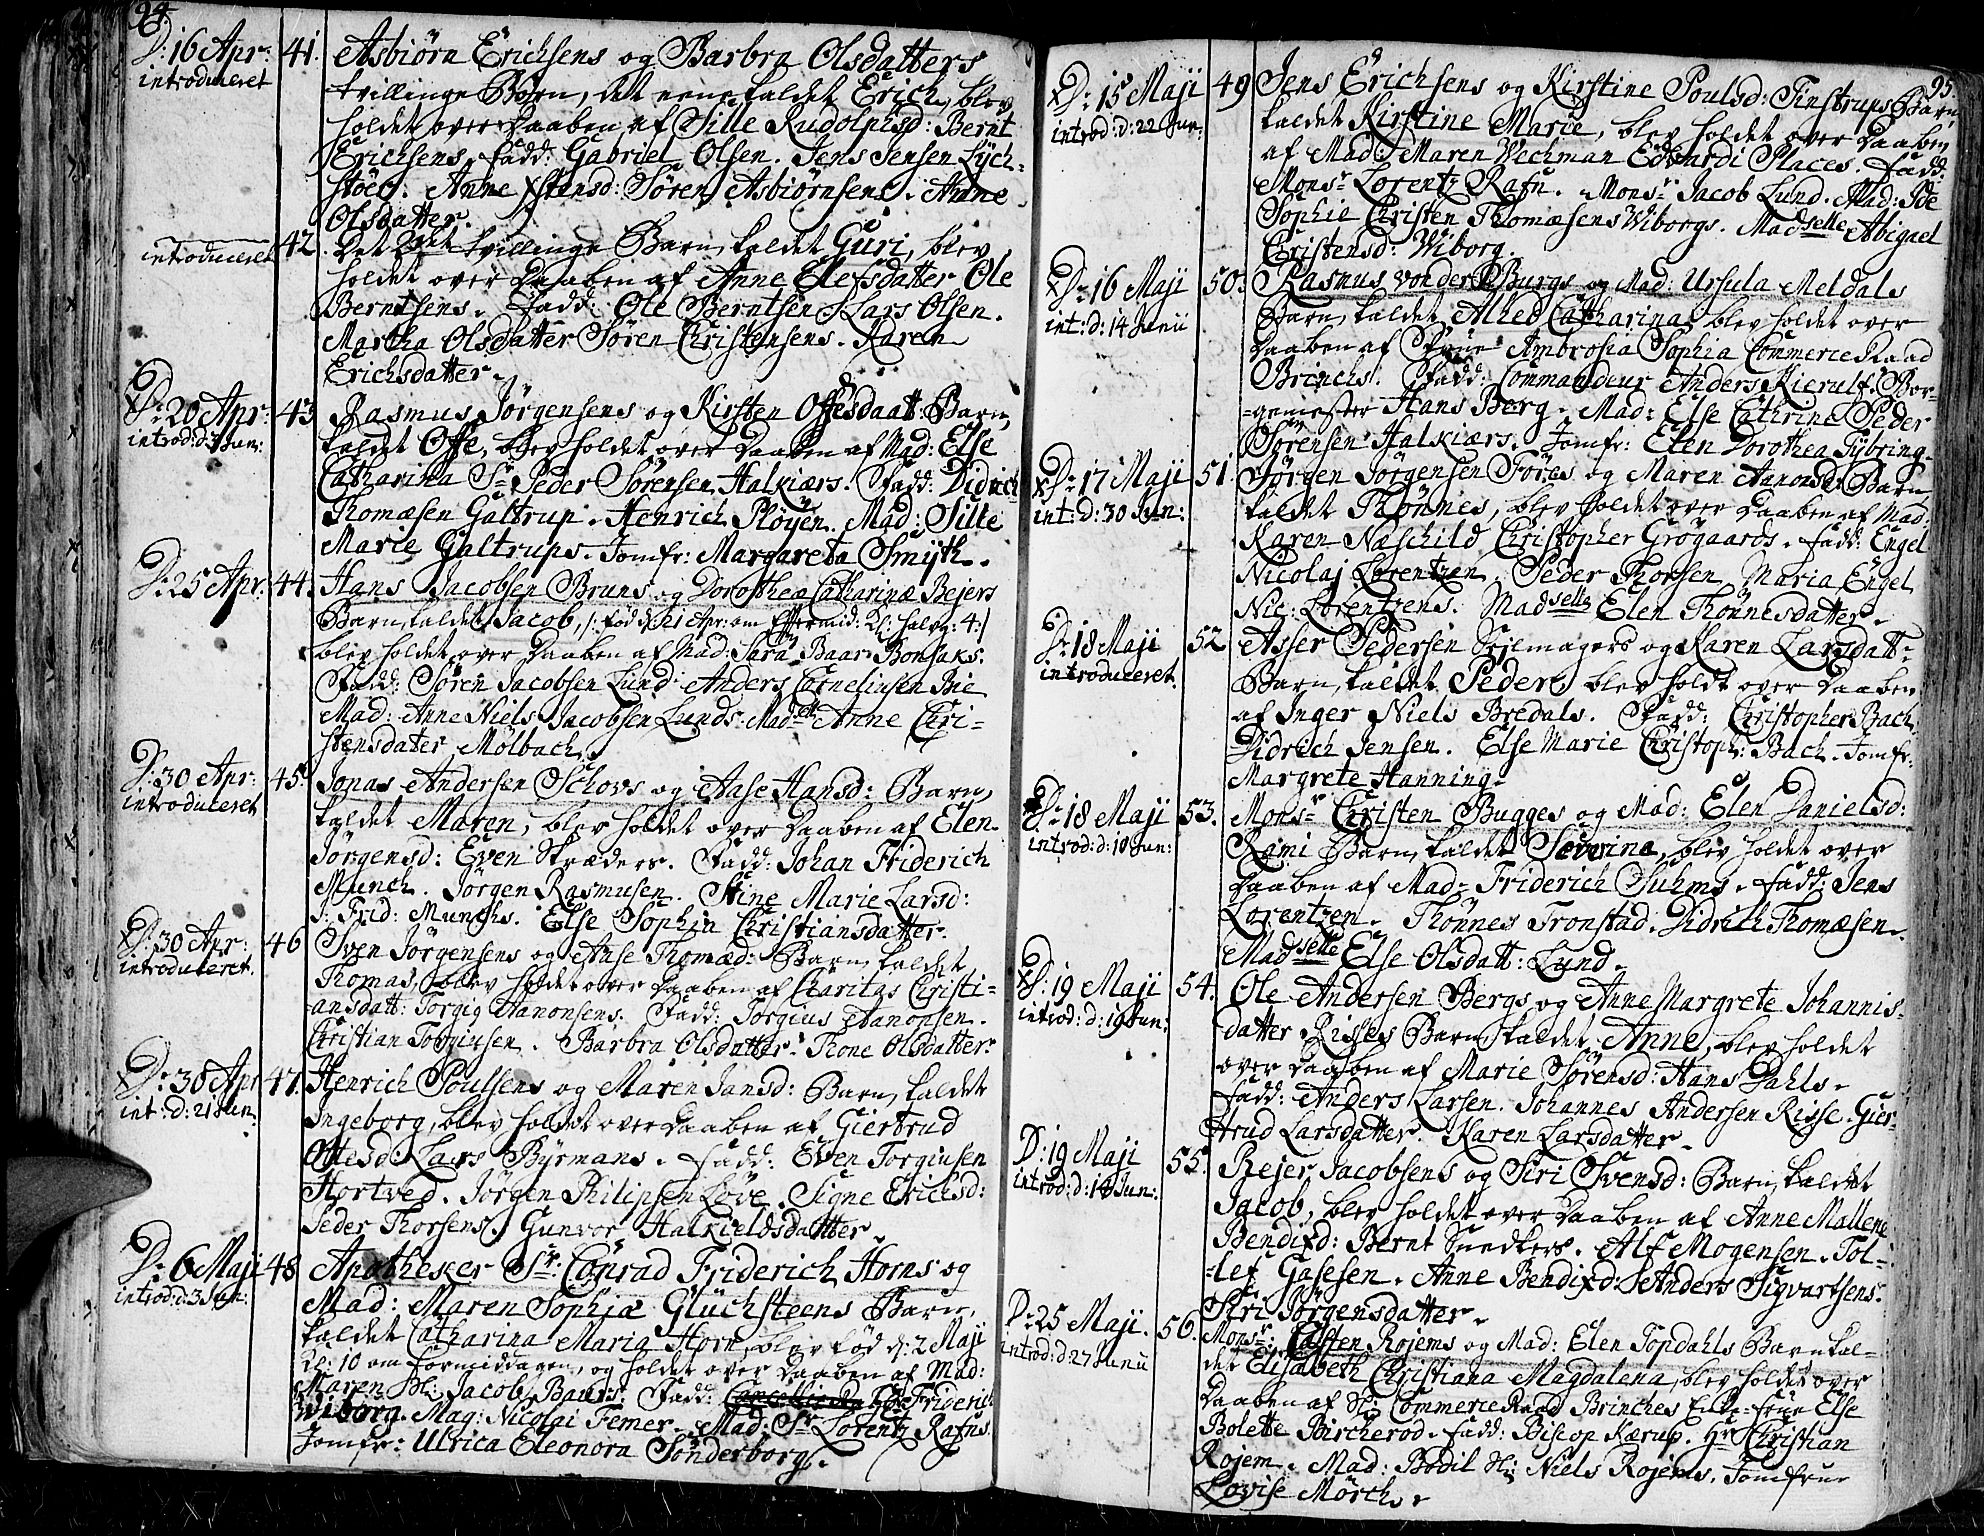 94.
D: 16 Apr: 41. Asbiørn Erichsens og Barbra Olsdatters
introduceret tvillinge Børn, det eene kaldet Erich, blev
holdet over Daaben af Sille Rudolphsd: Bernt
Erichsens. Fadd: Gabriel Olsen. Jens Jensen Lych-
Anne Søren Asbiørnsens. Anne
Olsdatter.
introduceret 42. Det 2det tvillinge Barn, kaldet Guri, blev
holdet over Daaben af Anne Elefsdatter Ole
Berntsens. Fadd: Ole Berntsen. Lars Olsen.
Martha Olsdatter Søren Christensens. Karen
Erichsdatter.
D: 20 Apr: 43. Rasmus Jørgensens og Kirsten Offesdaatt: Barn,
introd: d: 3 Jun: kaldet Offe, blev holdet over Daaben af Mad: Else
Catharina Sr Peder Sørensen Halkiærs. Fadd: Didrich
Thomæsen Galtrup. Henrich Pløyen. Mad: Sille
Marie Galtrups. Jomfr: Margareta Smijth.
D: 25 Apr: 44. Hans Jacobsen Bruns og Dorotheæ Catharinæ Bejers
Barn, kaldet Jacob, /: fød d: 21 Apr: om Eftermid: Kl: halv: 4 :/
blev holdet over Daaben af Mad: Sara Baar Bonsaks.
Fadd: Søren Jacobsen Lund. Anders Corneliusen Bie
Mad: Anne Niels Jacobsen Lunds. Madslle Anne Chri-
stensdater Mølbach.
D: 30 Apr: 45. Jonas Andersen Schovs og Aase Hansd: Barn,
introduceret kaldet Maren, blev holdet over Daaben af Elen
Jørgensd: Even Skræders. Fadd: Johan Friderich
Munch. Jørgen Rasmusen. Stine Marie Larsd:
J: Frid: Munchs. Else Sophia Christiansdatter.
D: 30 Apr: 46 Sven Jørgensens og Aase Thomæd: Barn, kaldet
introduceret. Thomas, blev holdet over Daaben af Charitas Christi-
ansdatt: Torgig Aanonsens. Fadd: Torgius Aanonsen.
Christian Torgiusen. Barbra Olsdatter. Thone Olsdatter.
D: 30 Apr 47. Henrich Poulsens og Maren Jansd: Barn, kaldet
int: d: 21 Jun: Ingeborg, blev holdet over Daaben af Giertrud
Ottesd: Lars Byrmans. Fadd: Even Torgiusen
Hortved. Jørgen Philipsen Løve. Signe Erichsd:
Peder Thorsens. Gunvor Halkieldsdatter.
D: 6 Maji 48 Apotheker Sr: Conrad Friderich Horns og
introd: d: 3 Jun: Mad: Maren Sophiæ Glüchsteens Barn,
kaldet Catharina Maria Horn, blev fød d: 2 Maji
Kl: 10 om formiddagen, og holdet over Daaben af Mad:
Maren Jacob Baurs. Fadd: Friderich
Wiborg. Mag: Nicolai Femer. Mad: Sr Lorentz Rafns.
Jomfr: Ulrica Eleonora Sønderborg.
95
D: 15 Maji 49 Jens Erichsens og Kirstine Poulsd: Finstrups Barn,
introd: d: 22 Jun: kaldet Kirstine Marie, blev holdet over Daaben
af Mad: Maren Wechman Edvardi Places. Fadd:
Monsr Lorentz Rafn. Monsr Jacob Lund. Mad: Ide
Sophie Christen Thomæsens Wiborgs. Madselle Abigael
Christensd: Wiborg.
D: 16 Maji 50. Rasmus von der Burgs og Mad: Ursula Meldals
int: d: 14 Junii Barn, kaldet Alhed Catharina, blev holdet over
Daaben af Frue Ambrosia Sophia Commerce Raad
Brinchs. Fadd: Commandeur Anders Kierulf. Bor-
gemester Hans Berg. Mad: Else Cathrine Peder
Sørensen Halkiærs. Jomfr: Elen Dorothea Fybring.
D: 17 Maji 51. Jørgen Jørgensen Føres og Maren Aanonsd: Barn,
int: d: 30 Jun: kaldet Thønnes, blev holdet over Daaben af Mad:
Karen Næschild Christopher Grøgaards. Fadd: Engel
Nicolaj Lorentzen. Peder Thorsen. Maria Engel
Nic: Lorentzens. Madselle Elen Thønnesdatter.
D: 18 Maji 52 Asser Pedersen Sejlmagers og Karen Larsdatt-
introduceret. Barn, kaldet Peder, blev holdt over Daaben
af Inger Niels Bredals. Fadd: Christopher Bach.
Didrich Jensen. Else Marie Christoph: Bach. Jomfr:
Margrete Hanning.
D: 18 Maji 53. Monsr Christen Bugges og Mad: Elen Danielsd:
introd: d: 10 Jun: Rami Barn, kaldet Severine, blev holdet over
Daaben af Mad: Friderich Suhms. Fadd: Jens
Lorentzen. Thønnes Tronstad. Didrich Thomæsen.
Madselle Else Olsdatt: Lund.
D: 19 Maji 54. Ole Andersen Bergs og Anne Margrete Johannis-
introd: d: 19 Jun: datter Risses Barn, kaldet Anne, blev holdet
over Daaben af Marie Sørensd: Hans Dahls.
Fadd: Anders Larsen. Johannes Andersen Risse. Gier-
trud Larsdatter. Karen Larsdatter.
D: 19 Maji 55. Rejer Jacobsens og Siri Svensd: Barn, kaldet
introd: d: 18 Jun: Jacob, blev holdet over Daaben af Anne Mallene
Bendixd: Bernt Snedkers. Alf Mogensen. Tol-
lef Gasesen. Anne Bendixd: Anders Sigvartsens.
Siri Jørgensdatter.
D: 25 Maji. 56. Monsr: Carsten Rojems og Mad: Elen Topdahls Barn kal-
introd: d: 27 Junii det Elisabeth Christiana Magdalena, blev holdet over
Daaben af Commerce Raad Brinches Enke-Frue Else
Bolette Bircherod. Fadd: Biscop Kærup. Hr Christian
Rojem. Mad: Bodil Niels Rojems. Jomfrue
Lovise Mørch.